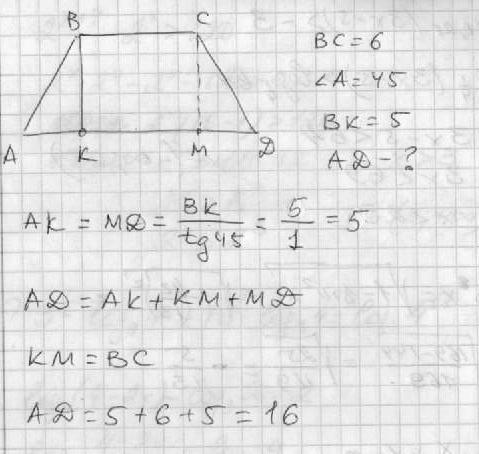 B C
A K M D
BC = 6
∠A = 45
BK = 5
AD - ?
AK = MD = BK/tg 45 = 5/1 = 5
AD = AK + KM + MD
KM = BC
AD = 5 + 6 + 5 = 16